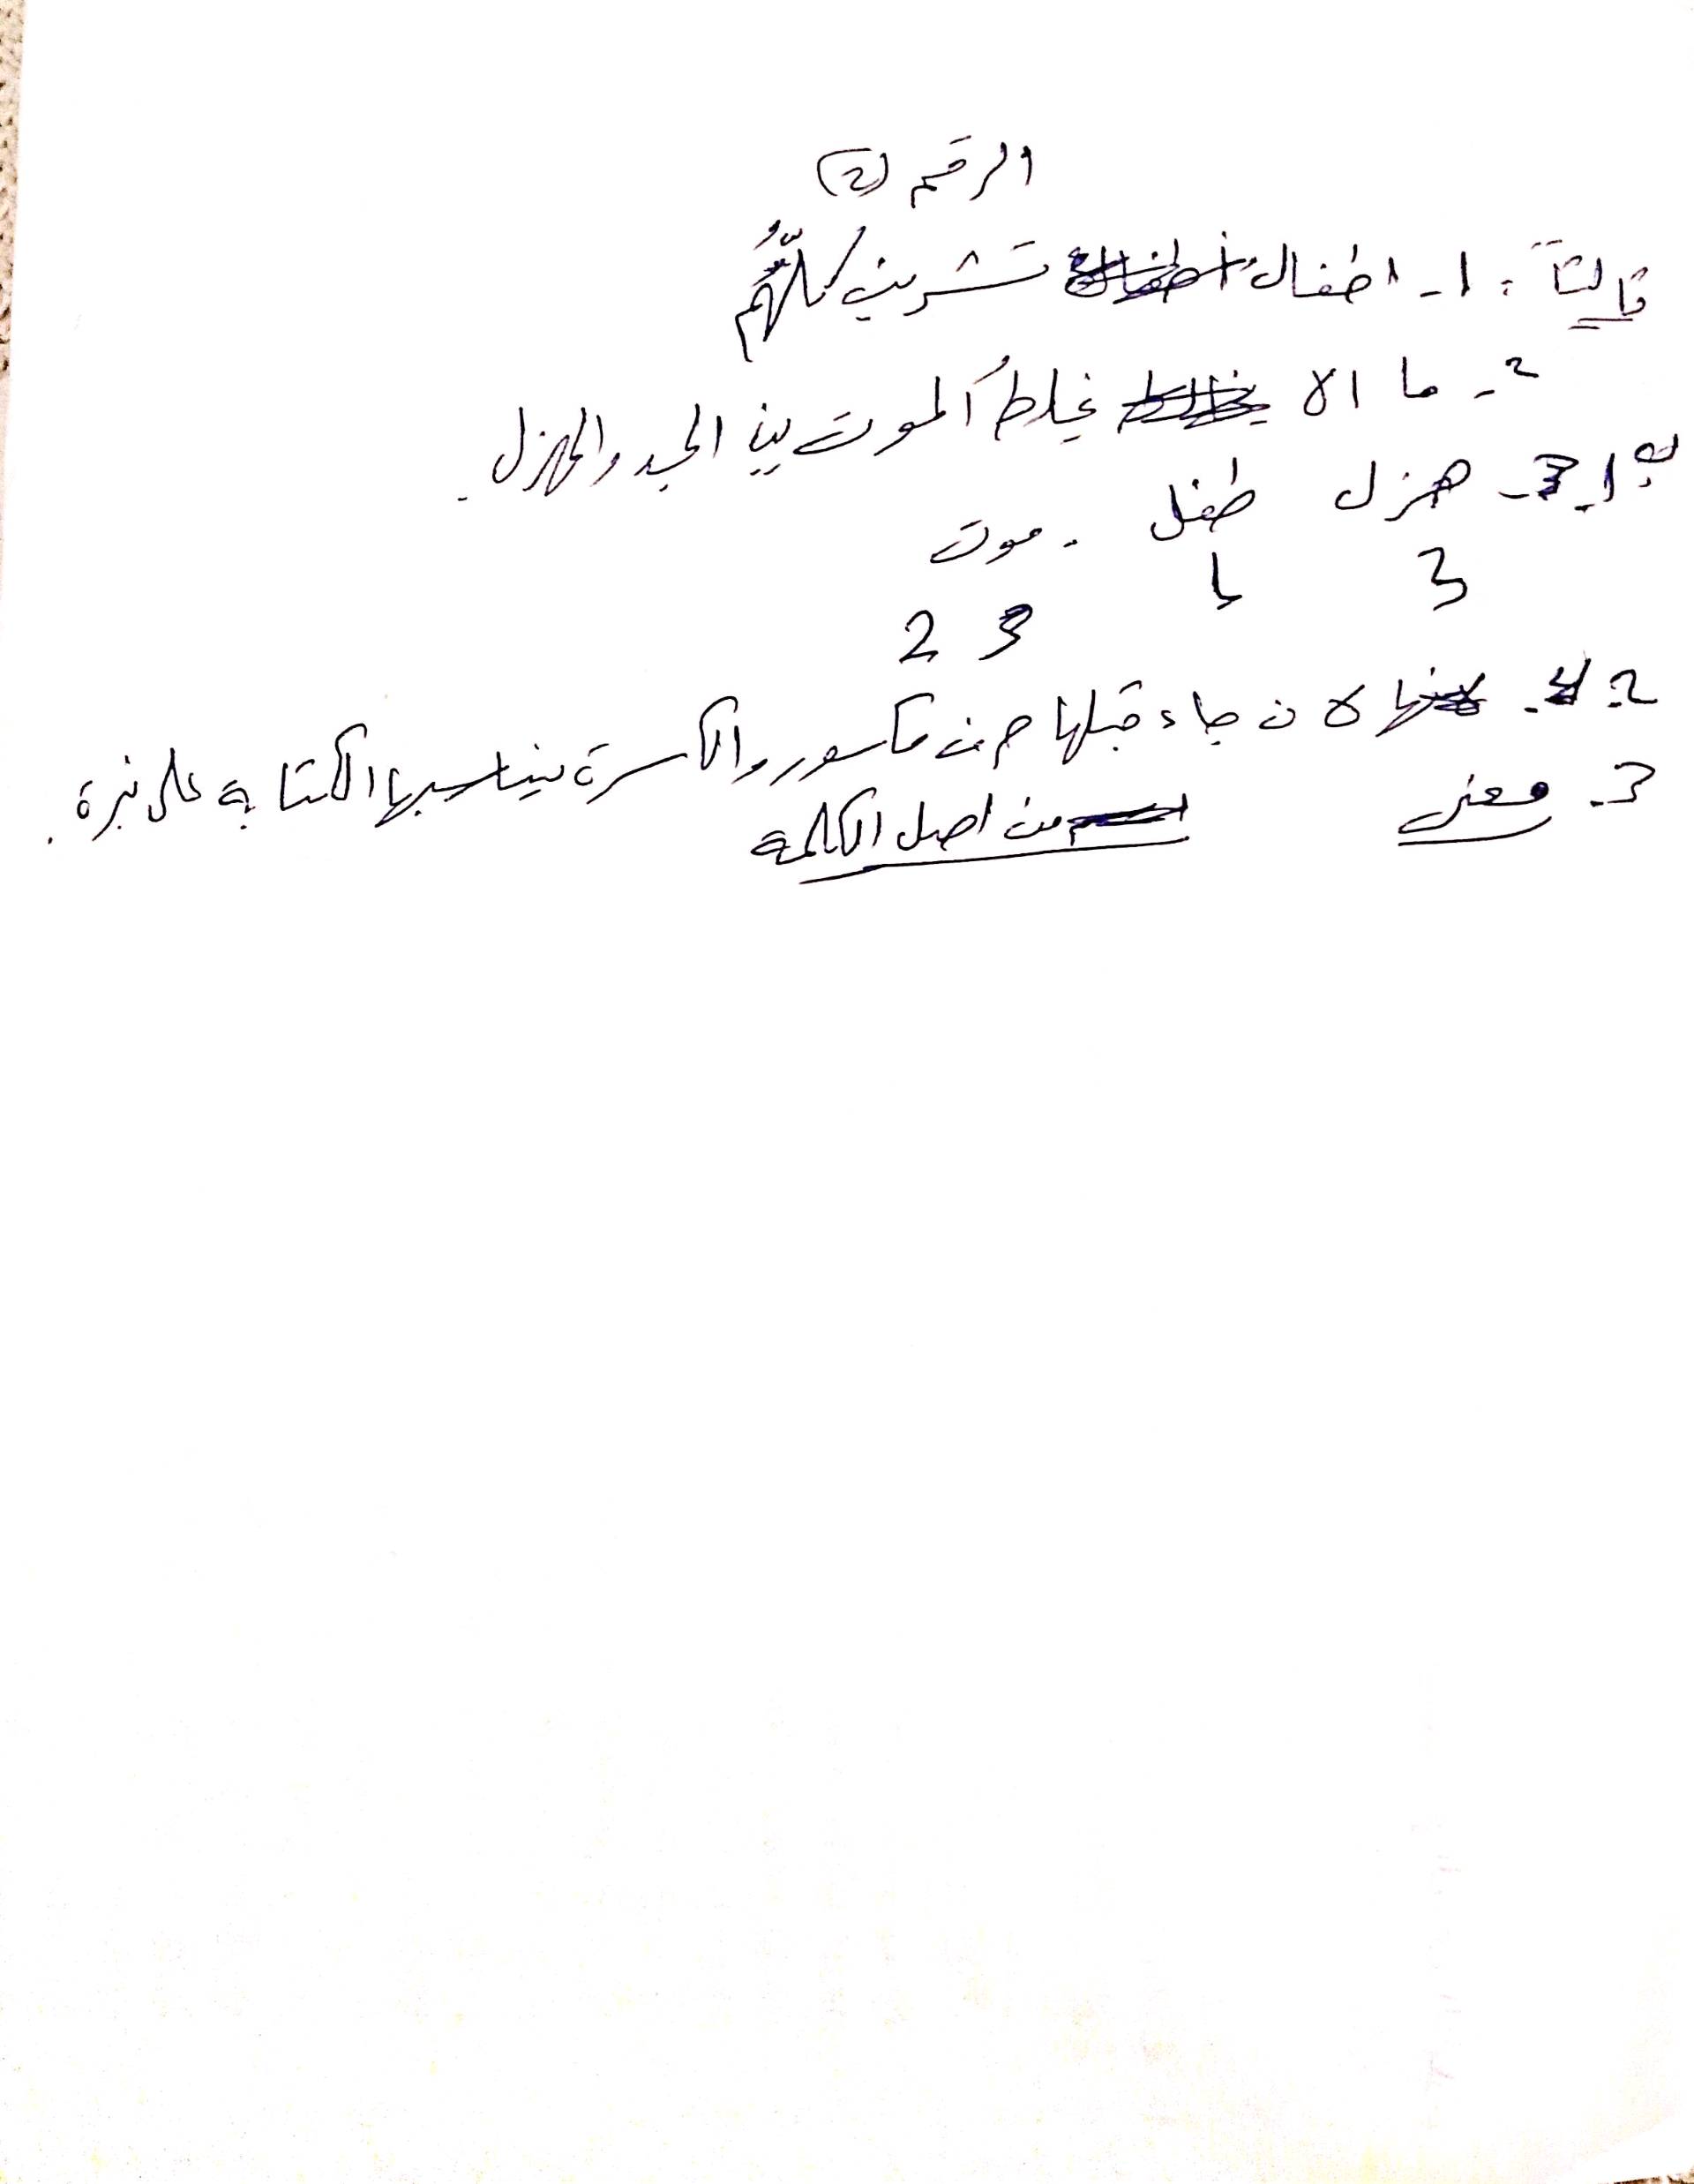 الرقم (2)
ثالثاً : 1- اطفالُ تشرين كلّهُم
2- ما الا يخلطُ الموت بين الجد والهزل .
ب، 1- هزل طفل - موت
3 1
3 2
2- لان جاء قبلها حرف مكسور والكسرة يناسبها الكتابة على نبرة .
3- من اصل الكلمة